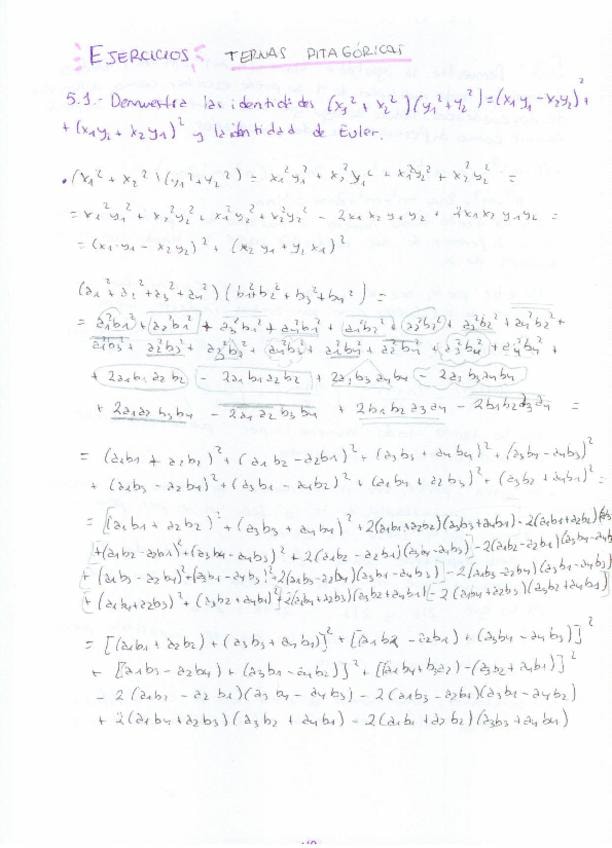 EJERCICIOS TERNAS PITAGÓRICAS
5.1.- Demuestra las identidades (x₁² + x₂²)(y₁² + y₂²) = (x₁y₁ - x₂y₂)² +
+ (x₁y₂ + x₂y₁)² y la identidad de Euler.
• (x₁² + x₂²)(y₁² + y₂²) = x₁²y₁² + x₂²y₁² + x₁²y₂² + x₂²y₂² =
= x₁²y₁² + x₂²y₂² + x₁²y₂² + x₂²y₂² - 2x₁x₂y₁y₂ + 2x₁x₂y₁y₂ =
= (x₁·y₁ - x₂y₂)² + (x₂y₁ + y₂x₁)²
(a₁² + a₂² + a₃² + a₄²)(b₁² + b₂² + b₃² + b₄²) =
= a₁²b₁² + a₂²b₁² + a₃²b₁² + a₄²b₁² + a₁²b₂² + a₂²b₂² + a₃²b₂² + a₄²b₂² +
a₁²b₃² + a₂²b₃² + a₃²b₃² + a₄²b₃² + a₁²b₄² + a₂²b₄² + a₃²b₄² + a₄²b₄² +
+ 2a₁b₁a₂b₂ - 2a₁b₁a₂b₂ + 2a₃b₃a₄b₄ - 2a₃b₃a₄b₄
+ 2a₁a₂b₃b₄ - 2a₁a₂b₃b₄ + 2b₁b₂a₃a₄ - 2b₁b₂a₃a₄ =
= (a₁b₁ + a₂b₂)² + (a₁b₂ - a₂b₁)² + (a₃b₃ + a₄b₄)² + (a₃b₄ - a₄b₃)²
+ (a₁b₃ - a₂b₄)² + (a₃b₁ - a₄b₂)² + (a₁b₄ + a₂b₃)² + (a₃b₂ + a₄b₁)² =
= [(a₁b₁ + a₂b₂)² + (a₃b₃ + a₄b₄)² + 2(a₁b₁+a₂b₂)(a₃b₃+a₄b₄) - 2(a₁b₁+a₂b₂)
+(a₁b₂ - a₂b₁)² + (a₃b₄ - a₄b₃)² + 2(a₁b₂ - a₂b₁)(a₃b₄ - a₄b₃)] - 2(a₁b₂ - a₂b₁)(a₃b₄ - a₄b₃
+ (a₁b₃ - a₂b₄)² + (a₃b₁ - a₄b₂)² + 2(a₁b₃ - a₂b₄)(a₃b₁ - a₄b₂)] - 2(a₁b₃ - a₂b₄)(a₃b₁ - a₄b₂)
+ [(a₁b₄ + a₂b₃)² + (a₃b₂ + a₄b₁)² + 2(a₁b₄ + a₂b₃)(a₃b₂ + a₄b₁)] - 2(a₁b₄ + a₂b₃)(a₃b₂ + a₄b₁)
= [(a₁b₁ + a₂b₂) + (a₃b₃ + a₄b₄)]² + [(a₁b₂ - a₂b₁) + (a₃b₄ - a₄b₃)]²
+ [(a₁b₃ - a₂b₄) + (a₃b₁ - a₄b₂)]² + [(a₁b₄ + b₃a₂) - (a₃b₂ + a₄b₁)]²
- 2(a₁b₂ - a₂b₁)(a₃b₄ - a₄b₃) - 2(a₁b₃ - a₂b₄)(a₃b₁ - a₄b₂)
+ 2(a₁b₄ + a₂b₃)(a₃b₂ + a₄b₁) - 2(a₁b₁ + a₂b₂)(a₃b₃ + a₄b₄)